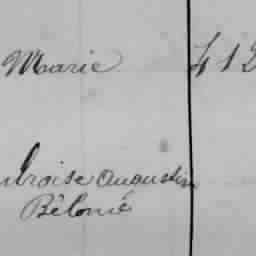 Marie 412
broise Augustin
Bélonié